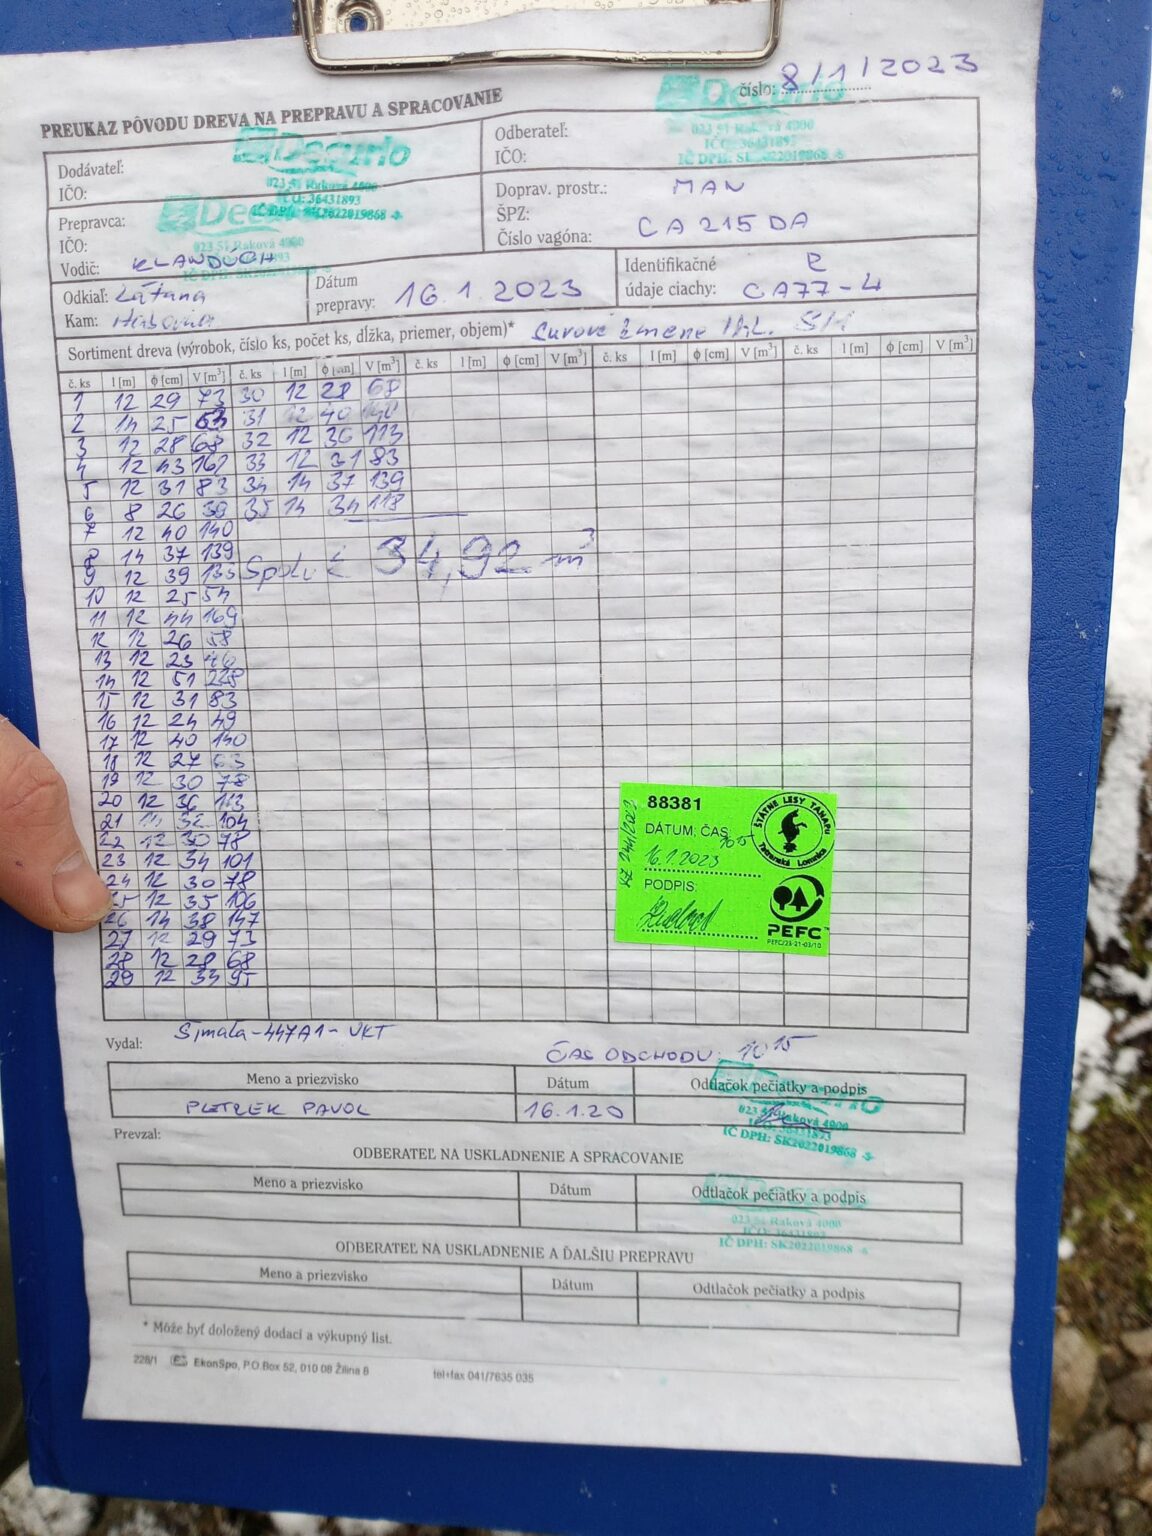 číslo: 8/1/2023
PREUKAZ PÔVODU DREVA NA PREPRAVU A SPRACOVANIE
Dodávateľ: Decurio
IČO:
023 51 Raková 4000
IČO: 36431893
IČ DPH: SK2022019868
Odberateľ: Decurio
IČO:
023 51 Raková 4000
IČO: 36431893
IČ DPH: SK2022019868
Prepravca:
IČO:
023 51 Raková 4000
Vodič: KLANDUCH
Doprav. prostr.: MAN
ŠPZ:
Číslo vagóna: CA 215 DA
Odkiaľ:
Kam:
Dátum
prepravy: 16.1.2023
Identifikačné R
údaje ciachy: CA77-4
Sortiment dreva (výrobok, číslo ks, počet ks, dĺžka, priemer, objem)* Surové kmene
č. ks l [m] ϕ [cm] V [m³] č. ks l [m] ϕ [cm] V [m³] č. ks l [m] ϕ [cm] V [m³] č. ks l [m] ϕ [cm] V [m³] č. ks l [m] ϕ [cm] V [m³]
1 12 29 73 30 12 28 68
2 14 25 63 31 12 40 140
3 12 28 68 32 12 36 113
4 12 43 162 33 12 31 83
5 12 31 83 34 14 37 139
6 8 26 38 35 14 34 118
7 12 40 140
8 14 37 139
9 12 39 133
Spolu: 34,92 m³
10 12 25 54
11 12 44 169
12 12 26 58
13 12 23 46
14 12 51 228
15 12 31 83
16 12 24 49
17 12 40 140
18 12 27 63
19 12 30 78
20 12 36 113
21 14 32 104
22 12 30 78
23 12 34 101
24 12 30 78
25 12 35 106
26 14 38 147
27 12 29 73
28 12 28 68
29 12 33 95
88381
DÁTUM, ČAS 1015
16.1.2023
PODPIS:
ŠTÁTNE LESY TANAPu
Tatranská Lomnica
PEFC™
PEFC/23-21-03/10
Vydal: Šimaľa-447A1-VKT
ČAS ODCHODU: 10 15
Meno a priezvisko Dátum Odtlačok pečiatky a podpis
PETREK PAVOL 16.1.20
023 51 Raková 4000
IČO: 36431893
IČ DPH: SK2022019868
Prevzal:
ODBERATEĽ NA USKLADNENIE A SPRACOVANIE
Meno a priezvisko Dátum Odtlačok pečiatky a podpis
023 51 Raková 4000
IČO: 36431893
IČ DPH: SK2022019868
ODBERATEĽ NA USKLADNENIE A ĎALŠIU PREPRAVU
Meno a priezvisko Dátum Odtlačok pečiatky a podpis
* Môže byť doložený dodací a výkupný list.
228/1 EkonSpo, P.O.Box 52, 010 08 Žilina 8 tel+fax 041/7635 035